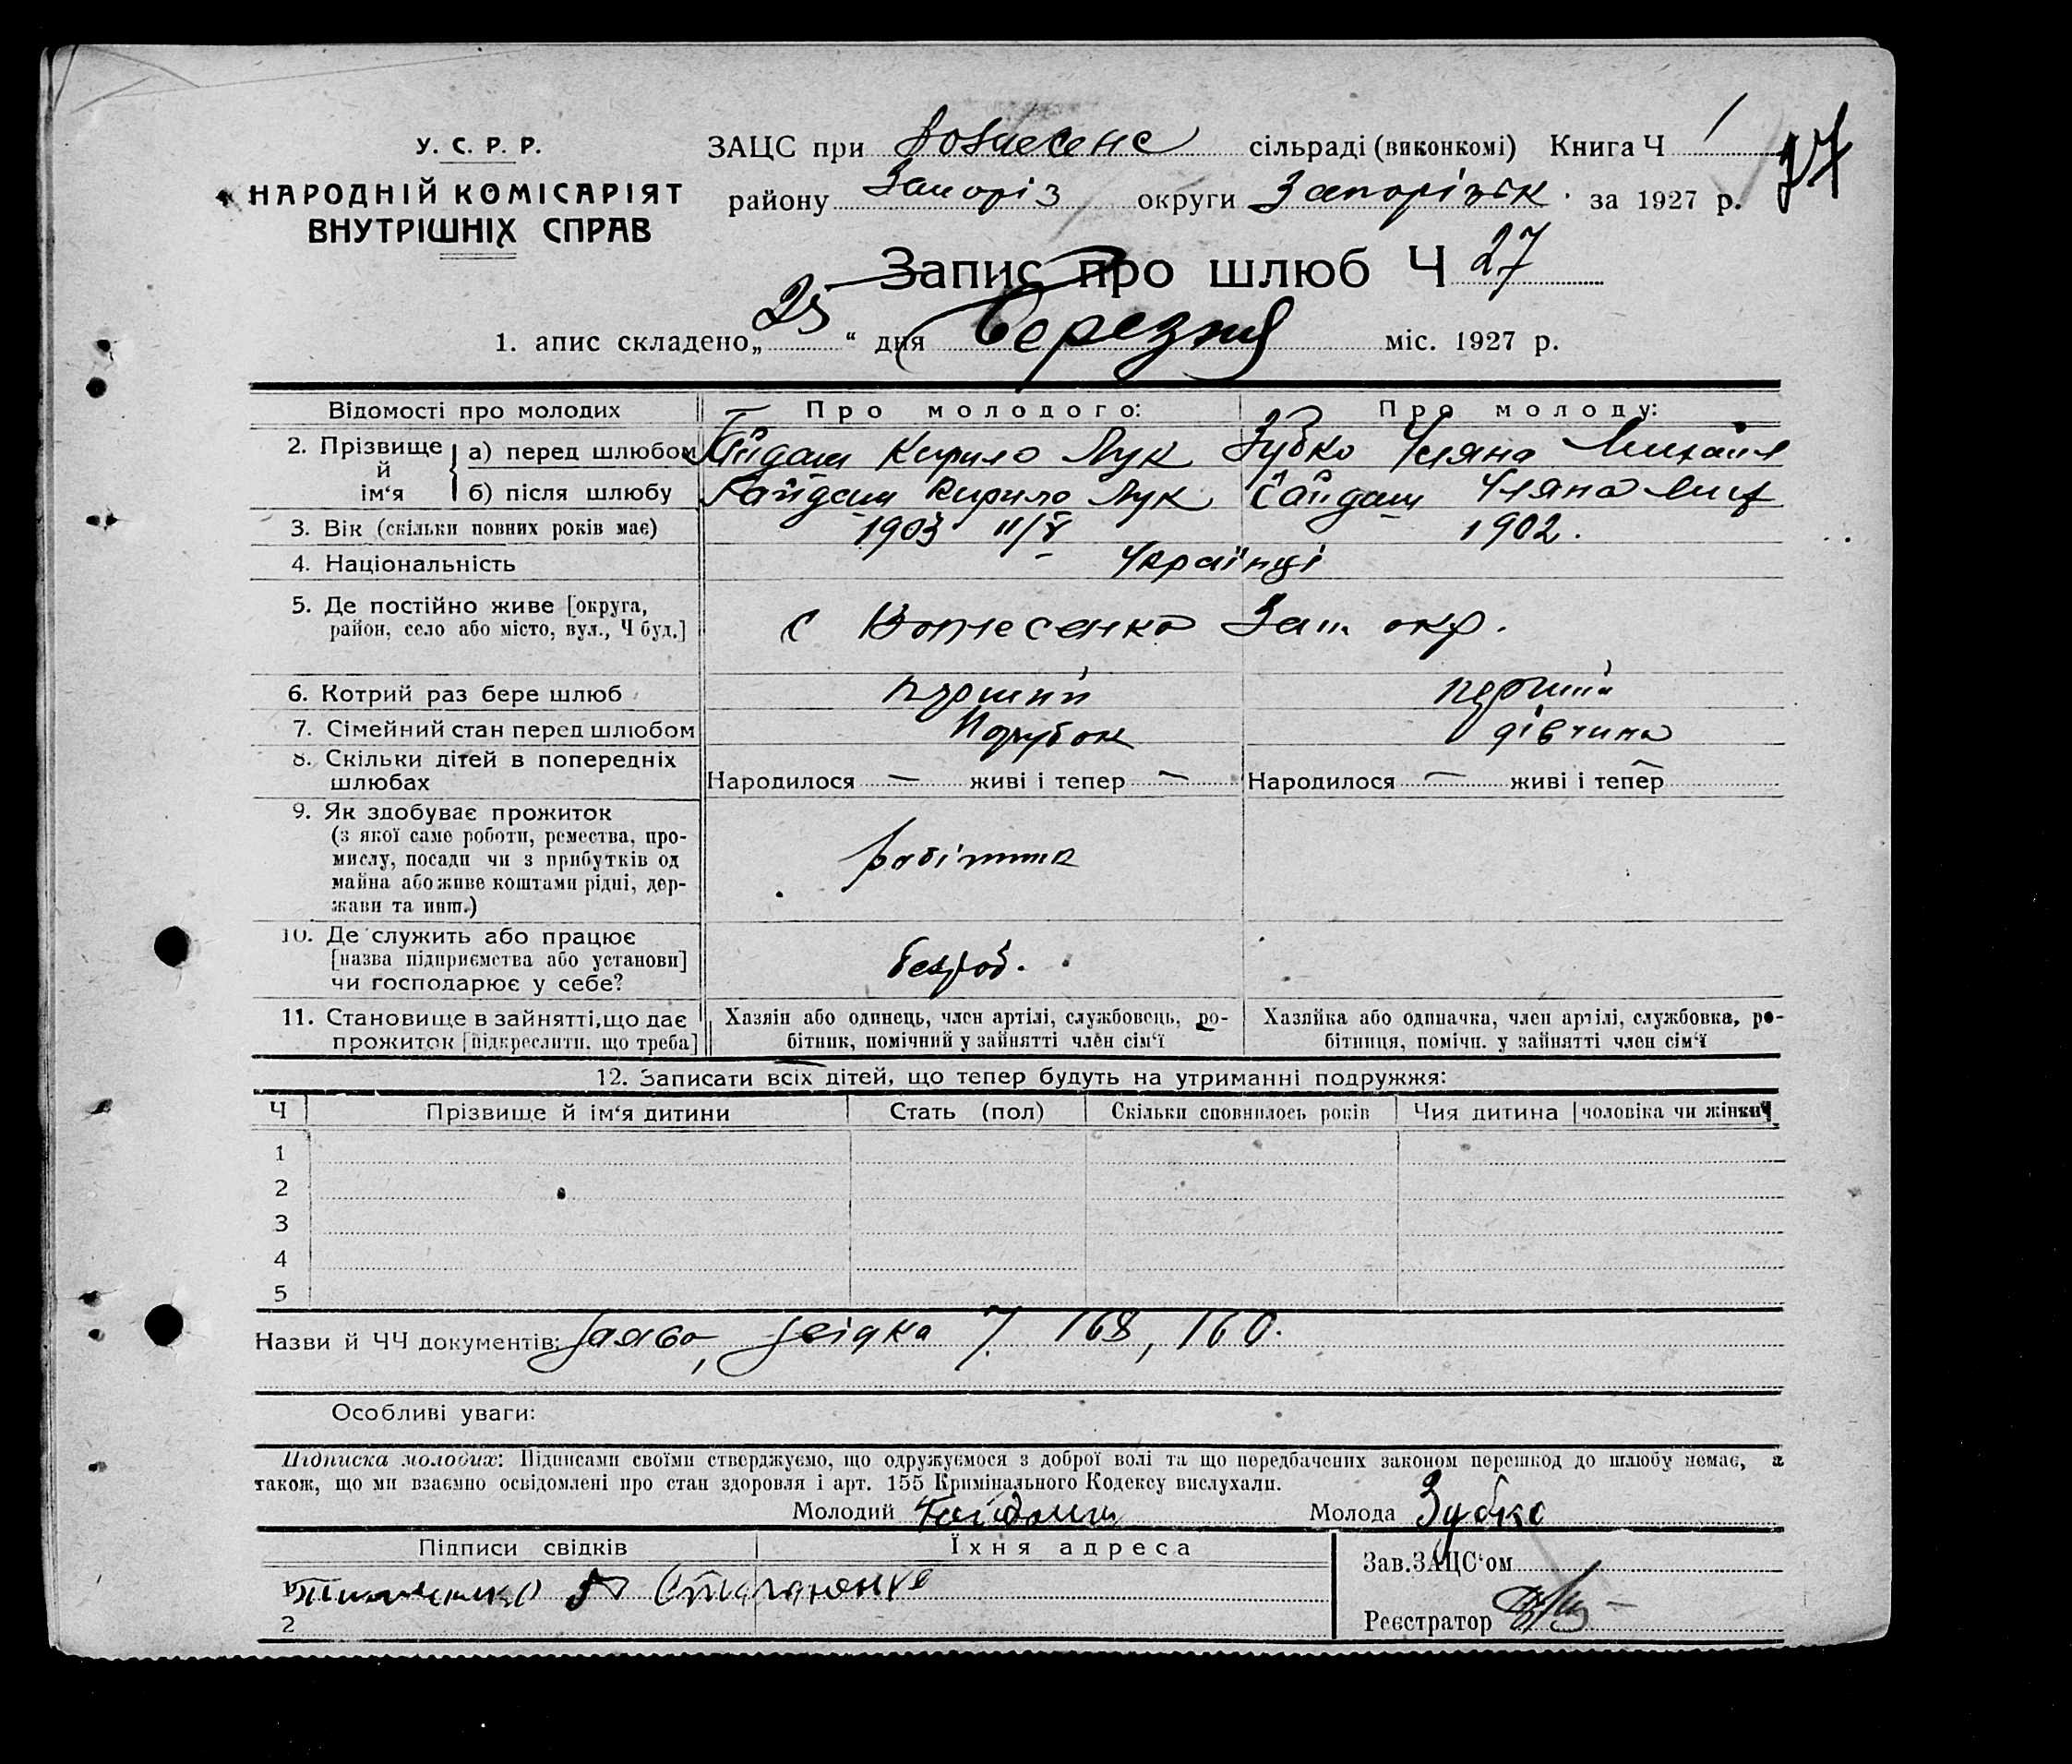 У. С. Р. Р.
НАРОДНІЙ КОМІСАРІЯТ
ВНУТРІШНІХ СПРАВ
ЗАЦС при Вознесенс сільраді (виконкомі) Книга Ч 1
27
району Запоріз округи Запорізьк. за 1927 р.
Запис про шлюб Ч 27
1. апис складено „25“ дня березня міс. 1927 р.
Відомості про молодих Про молодого: Про молоду:
2. Прізвище й ім‘я
а) перед шлюбом Гайдаш Кирило Лук Зубко Уляна Михайл
б) після шлюбу Гайдаш Кирило Лук Гайдаш Уляна Мих
3. Вік (скільки повних років має) 1903 11/V 1902.
4. Національність Українці
5. Де постійно живе [округа,
район, село або місто, вул., Ч буд.] с Вознесенка Зап. окр.
6. Котрий раз бере шлюб перший перший
7. Сімейний стан перед шлюбом Парубок дівчина
8. Скільки дітей в попередніх
шлюбах Народилося — живі і тепер — Народилося — живі і тепер —
9. Як здобуває прожиток
(з якої саме роботи, ремества, про-
мислу, посади чи з прибутків од
майна або живе коштами рідні, дер-
жави та инш.)
робітник
10. Де служить або працює
[назва підприємства або установи]
чи господарює у себе?
безроб.
11. Становище в зайнятті, що дає
прожиток [підкреслити, що треба]
Хазяїн або одинець, член артілі, службовець, ро-
бітник, помічний у зайнятті член сім‘ї
Хазяйка або одиначка, член артілі, службовка, ро-
бітниця, помічн. у зайнятті член сім‘ї
12. Записати всіх дітей, що тепер будуть на утриманні подружжя:
Ч Прізвище й ім‘я дитини Стать (пол) Скільки сповнилось років Чия дитина [чоловіка чи жінки]
1
2
3
4
5
Назви й ЧЧ документів: Заява, Звідка Ч. 168, 160.
Особливі уваги:
Підписка молодих: Підписами своїми стверджуємо, що одружуємося з доброї волі та що передбачених законом перешкод до шлюбу немає, а
також, що ми взаємно освідомлені про стан здоровля і арт. 155 Кримінального Кодексу вислухали.
Молодий Гайдаш Молода Зубко
Підписи свідків Їхня адреса
Зав. ЗАЦС‘ом
1
2
Реєстратор